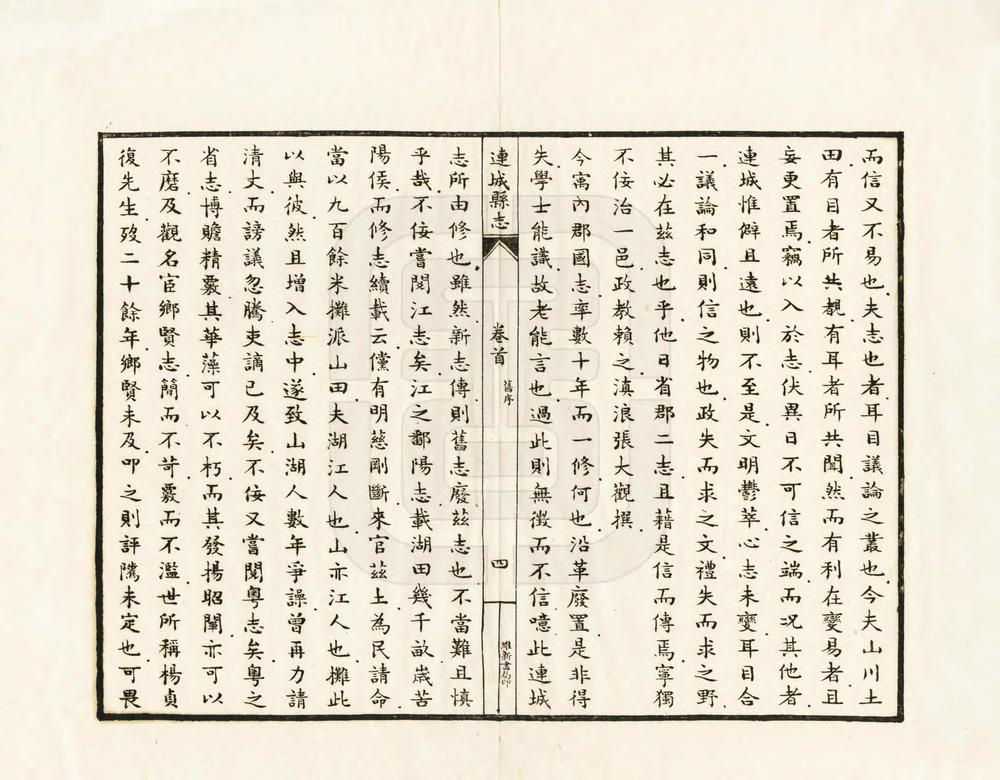 而信又不易也夫志也者耳目議論之叢也今夫山川土
田有目者所共覩有耳者所共聞然而有利在變易者且
妄更置焉竊以入於志伏異日不可信之端而况其他者
連城惟僻且遠也則不至是文明鬱萃心志未變耳目合
一議論和同則信之物也政失而求之文禮失而求之野
其必在茲志也乎他日省郡二志且藉是信而傳焉寧獨
不佞治一邑政教賴之滇浪張大觀撰
今寓內郡國志率數十年而一修何也沿革廢置是非得
失學士能識故老能言也過此則無徵而不信噫此連城
連城縣志
卷首
舊序
四
維新書局印
志所由修也雖然新志傳則舊志廢茲志也不當難且慎
乎哉不佞嘗閱江志矣江之鄱陽志載湖田幾千畝歲苦
陽侯而修志續載云儻有明慈剛斷來官茲土為民請命
當以九百餘米攤派山田夫湖江人也山亦江人也攤此
以與彼然且增入志中遂致山湖人數年爭譟曾再力請
清丈而謗議忽騰吏謫已及矣不佞又嘗閱粵志矣粵之
省志博贍精覈其華藻可以不朽而其發揚昭闡亦可以
不磨及觀名宦鄉賢志簡而不苛覈而不濫世所稱楊貞
復先生歿二十餘年鄉賢未及叩之則評隲未定也可畏